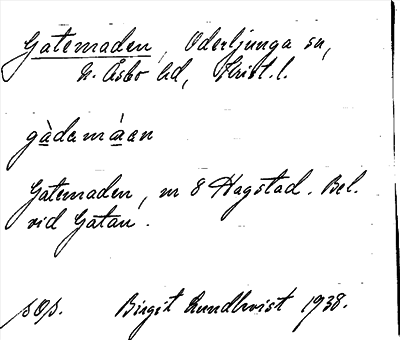 Gatemaden, Oderljunga sn,
N. Åsbo hd, Krist. l.
gàdemàen
Gatemaden, nr 8 Hagstad. Bel.
vid Gatan.
sOp. Birgit Rundkvist 1938.